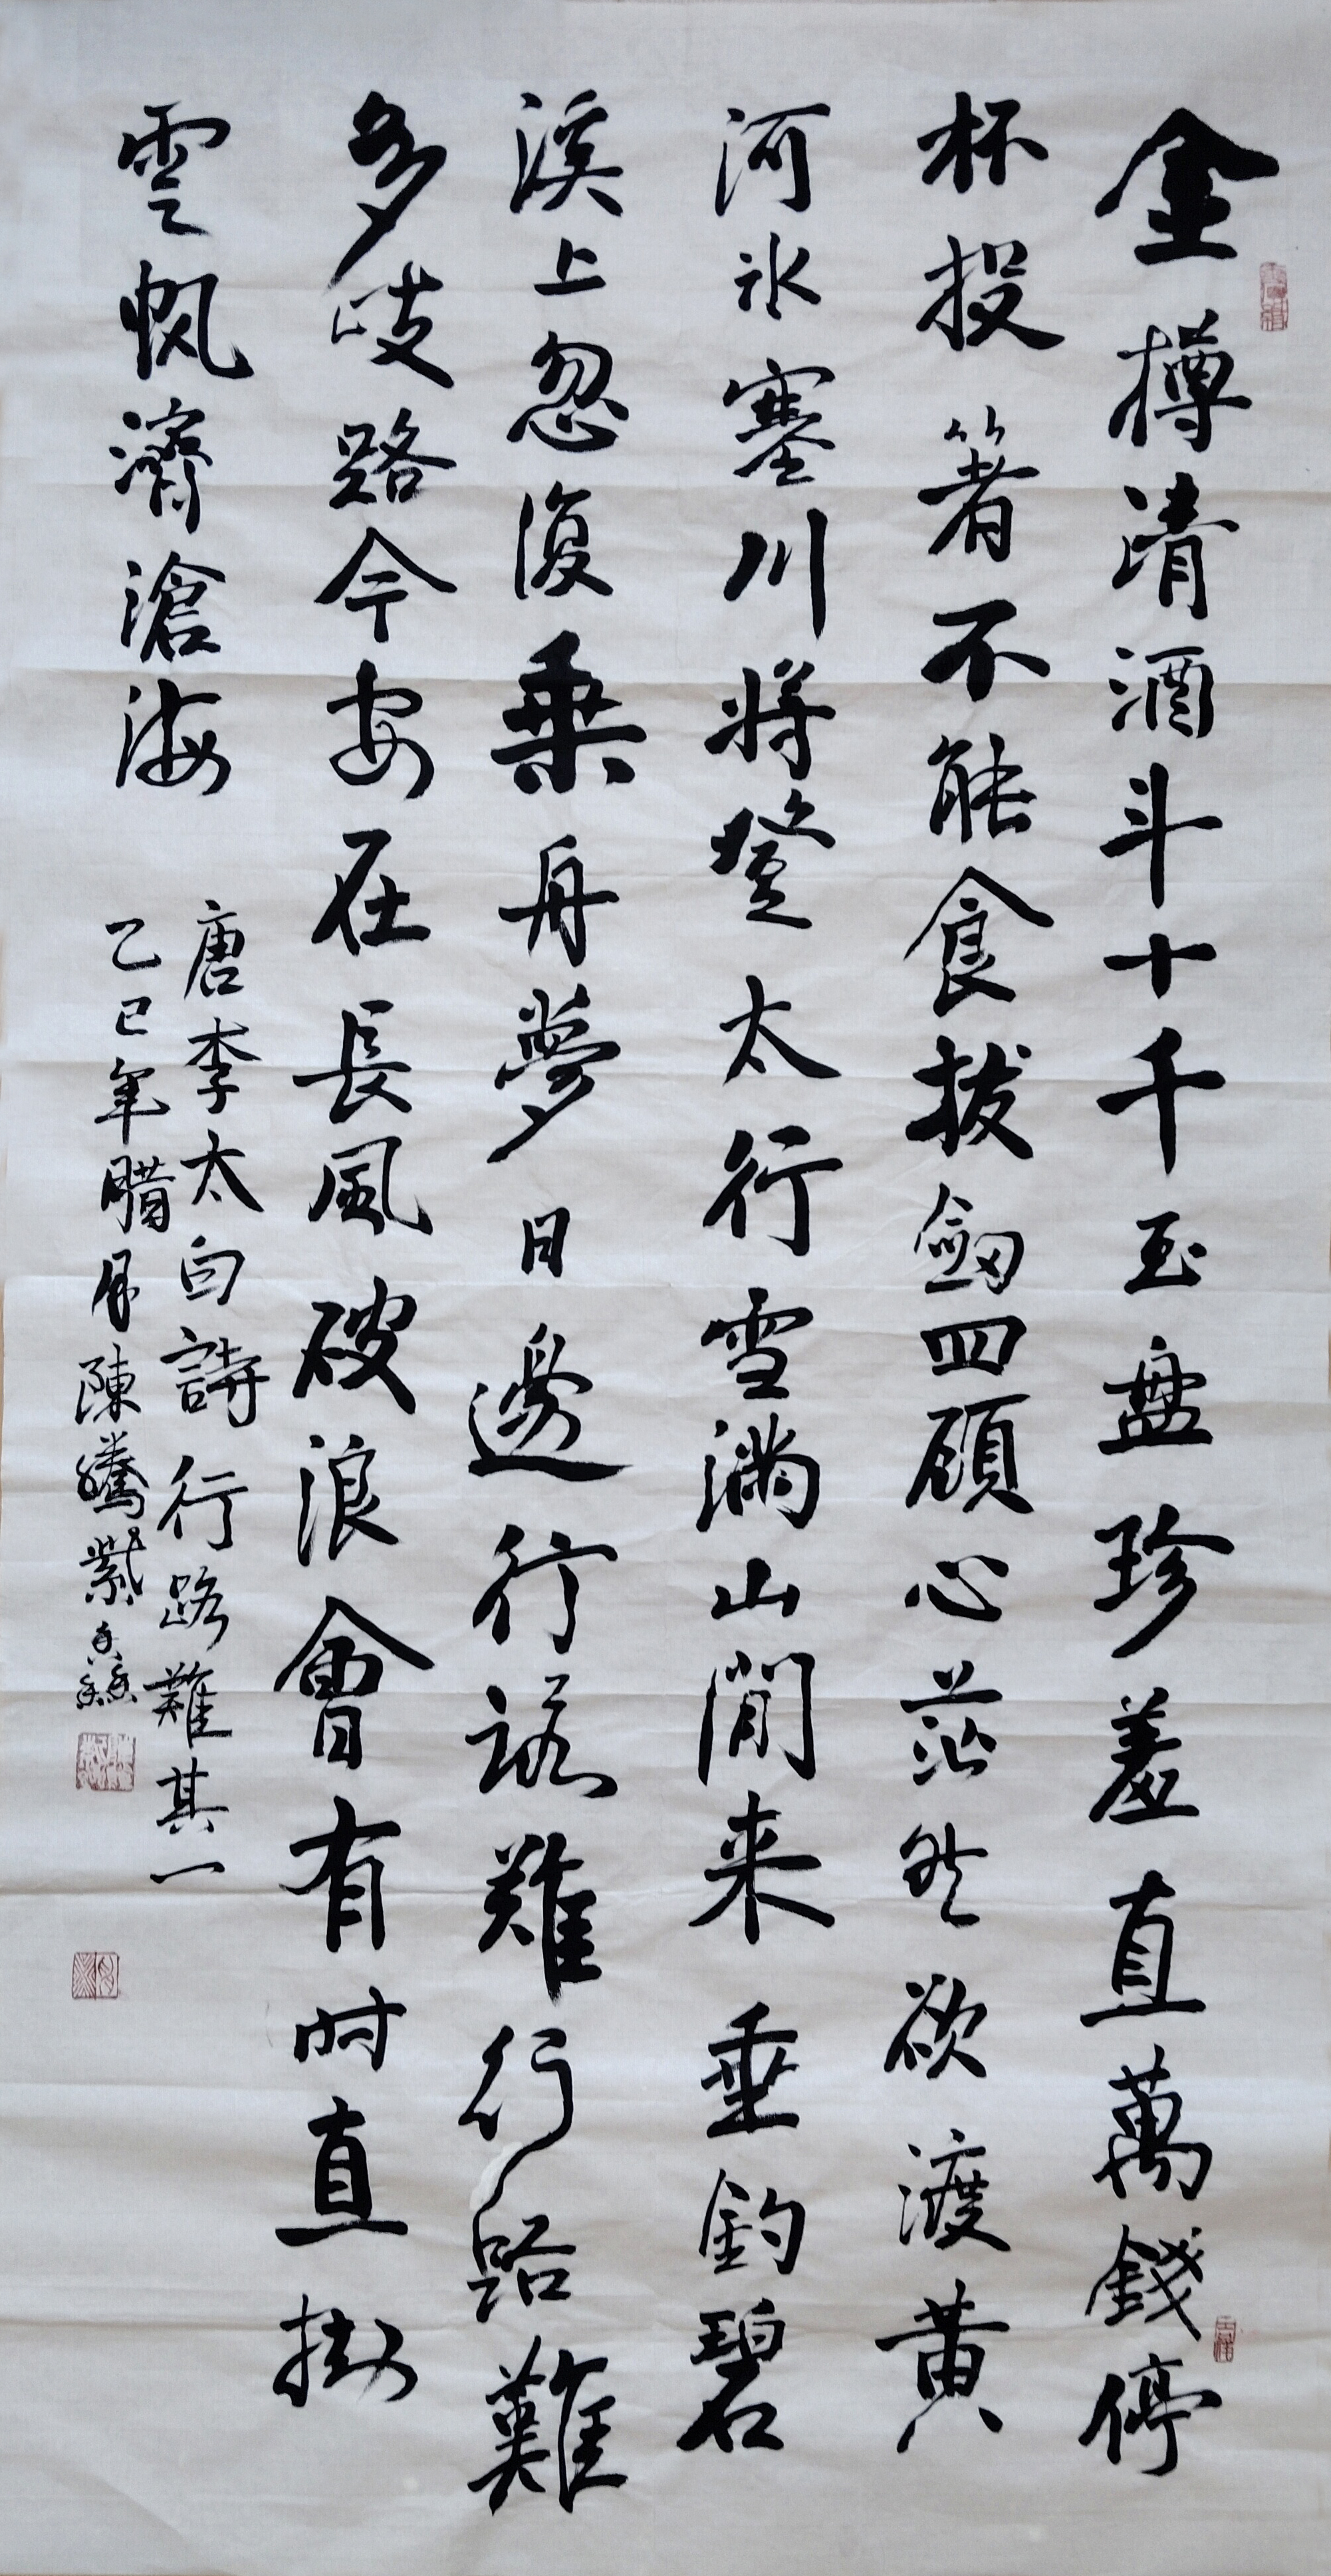 金樽清酒斗十千玉盘珍羞直萬錢停
杯投箸不能食拔劒四顧心茫然欲渡黃
河冰塞川將登太行雪滿山閒来垂釣碧
溪上忽復乗舟夢日邊行路難行路難
多歧路今安在長風破浪會有时直掛
雲帆濟滄海
唐李太白詩行路難其一
乙巳年臘月陳騰紫